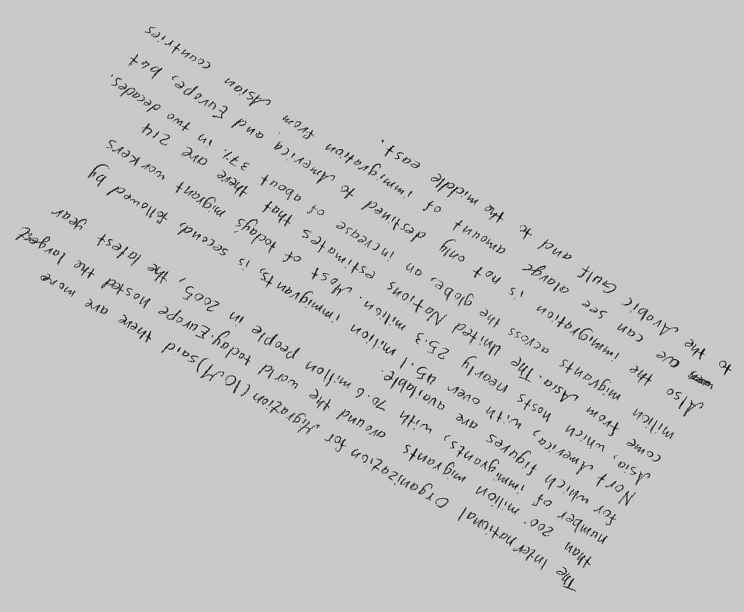 The International Organization for Migration (IOM) said there are more
than 200 million migrants around the world today. Europe hosted the largest
number of immigrants, with 70.6 million people in 2005, the latest year
for which figures are available.
Nort America, with over 45.1 million immigrants, is second, followed by
Asia, which hosts nearly 25.3 million. Most of todays migrant workers
come from Asia. The United Nations estimates that there are 214
million migrants across the globe, an increase of about 37% in two decades.
Also the immigration is not only destined to America and Europe, but
we can see alarge amount of immigration from Asian countries
to the Arabic Gulf and to the middle east.